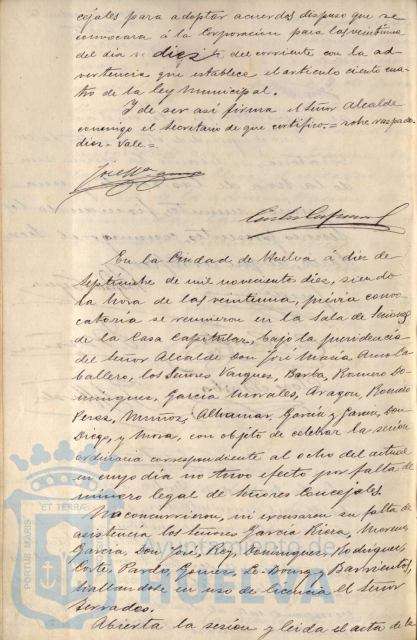 cejales para adoptar acuerdos dispuso que se
convocara á la Corporacion para las veintiuna
del dia diez del corriente con la ad-
vertencia que establece el articulo ciento cua-
tro de la Ley Municipal.
Y de ser así firma el Señor Alcalde
conmigo el Secretario de que certifico.= sobre raspado
diez- Vale=
En la Ciudad de Huelva á diez de
Septiembre de mil novecientos diez, siendo
la hora de las veintiuna, prévia convo-
catoria se reunieron en la Sala de Sesiones
de la Casa Capitular, bajo la presidencia
del Señor Alcalde Don José Maria Amo Ca-
ballero, los Señores Vazquez, Barba, Romero Do-
minguez, Garcia Morales, Aragon,
Perez, Muñoz, Albamar, Garcia y Garcia, Don
Diego, y Mora, con objeto de celebrar la sesion
ordinaria correspondiente al ocho del actual
en cuyo dia no tuvo efecto por falta de
numero legal de Señores Concejales.
No concurrieron, ni escusaron su falta de
asistencia los señores Garcia Riera, Moreno
Garcia, Don José, Rey, Dominguez, Rodriguez,
Corte, Pardo, Gomez, y Barrientos,
hallandose en uso de licencia el Señor
Serrades.
Abierta la sesion y leida el acta de la
PORTUS MARIS ET TERRAE
Ayuntamiento de
HUELVA